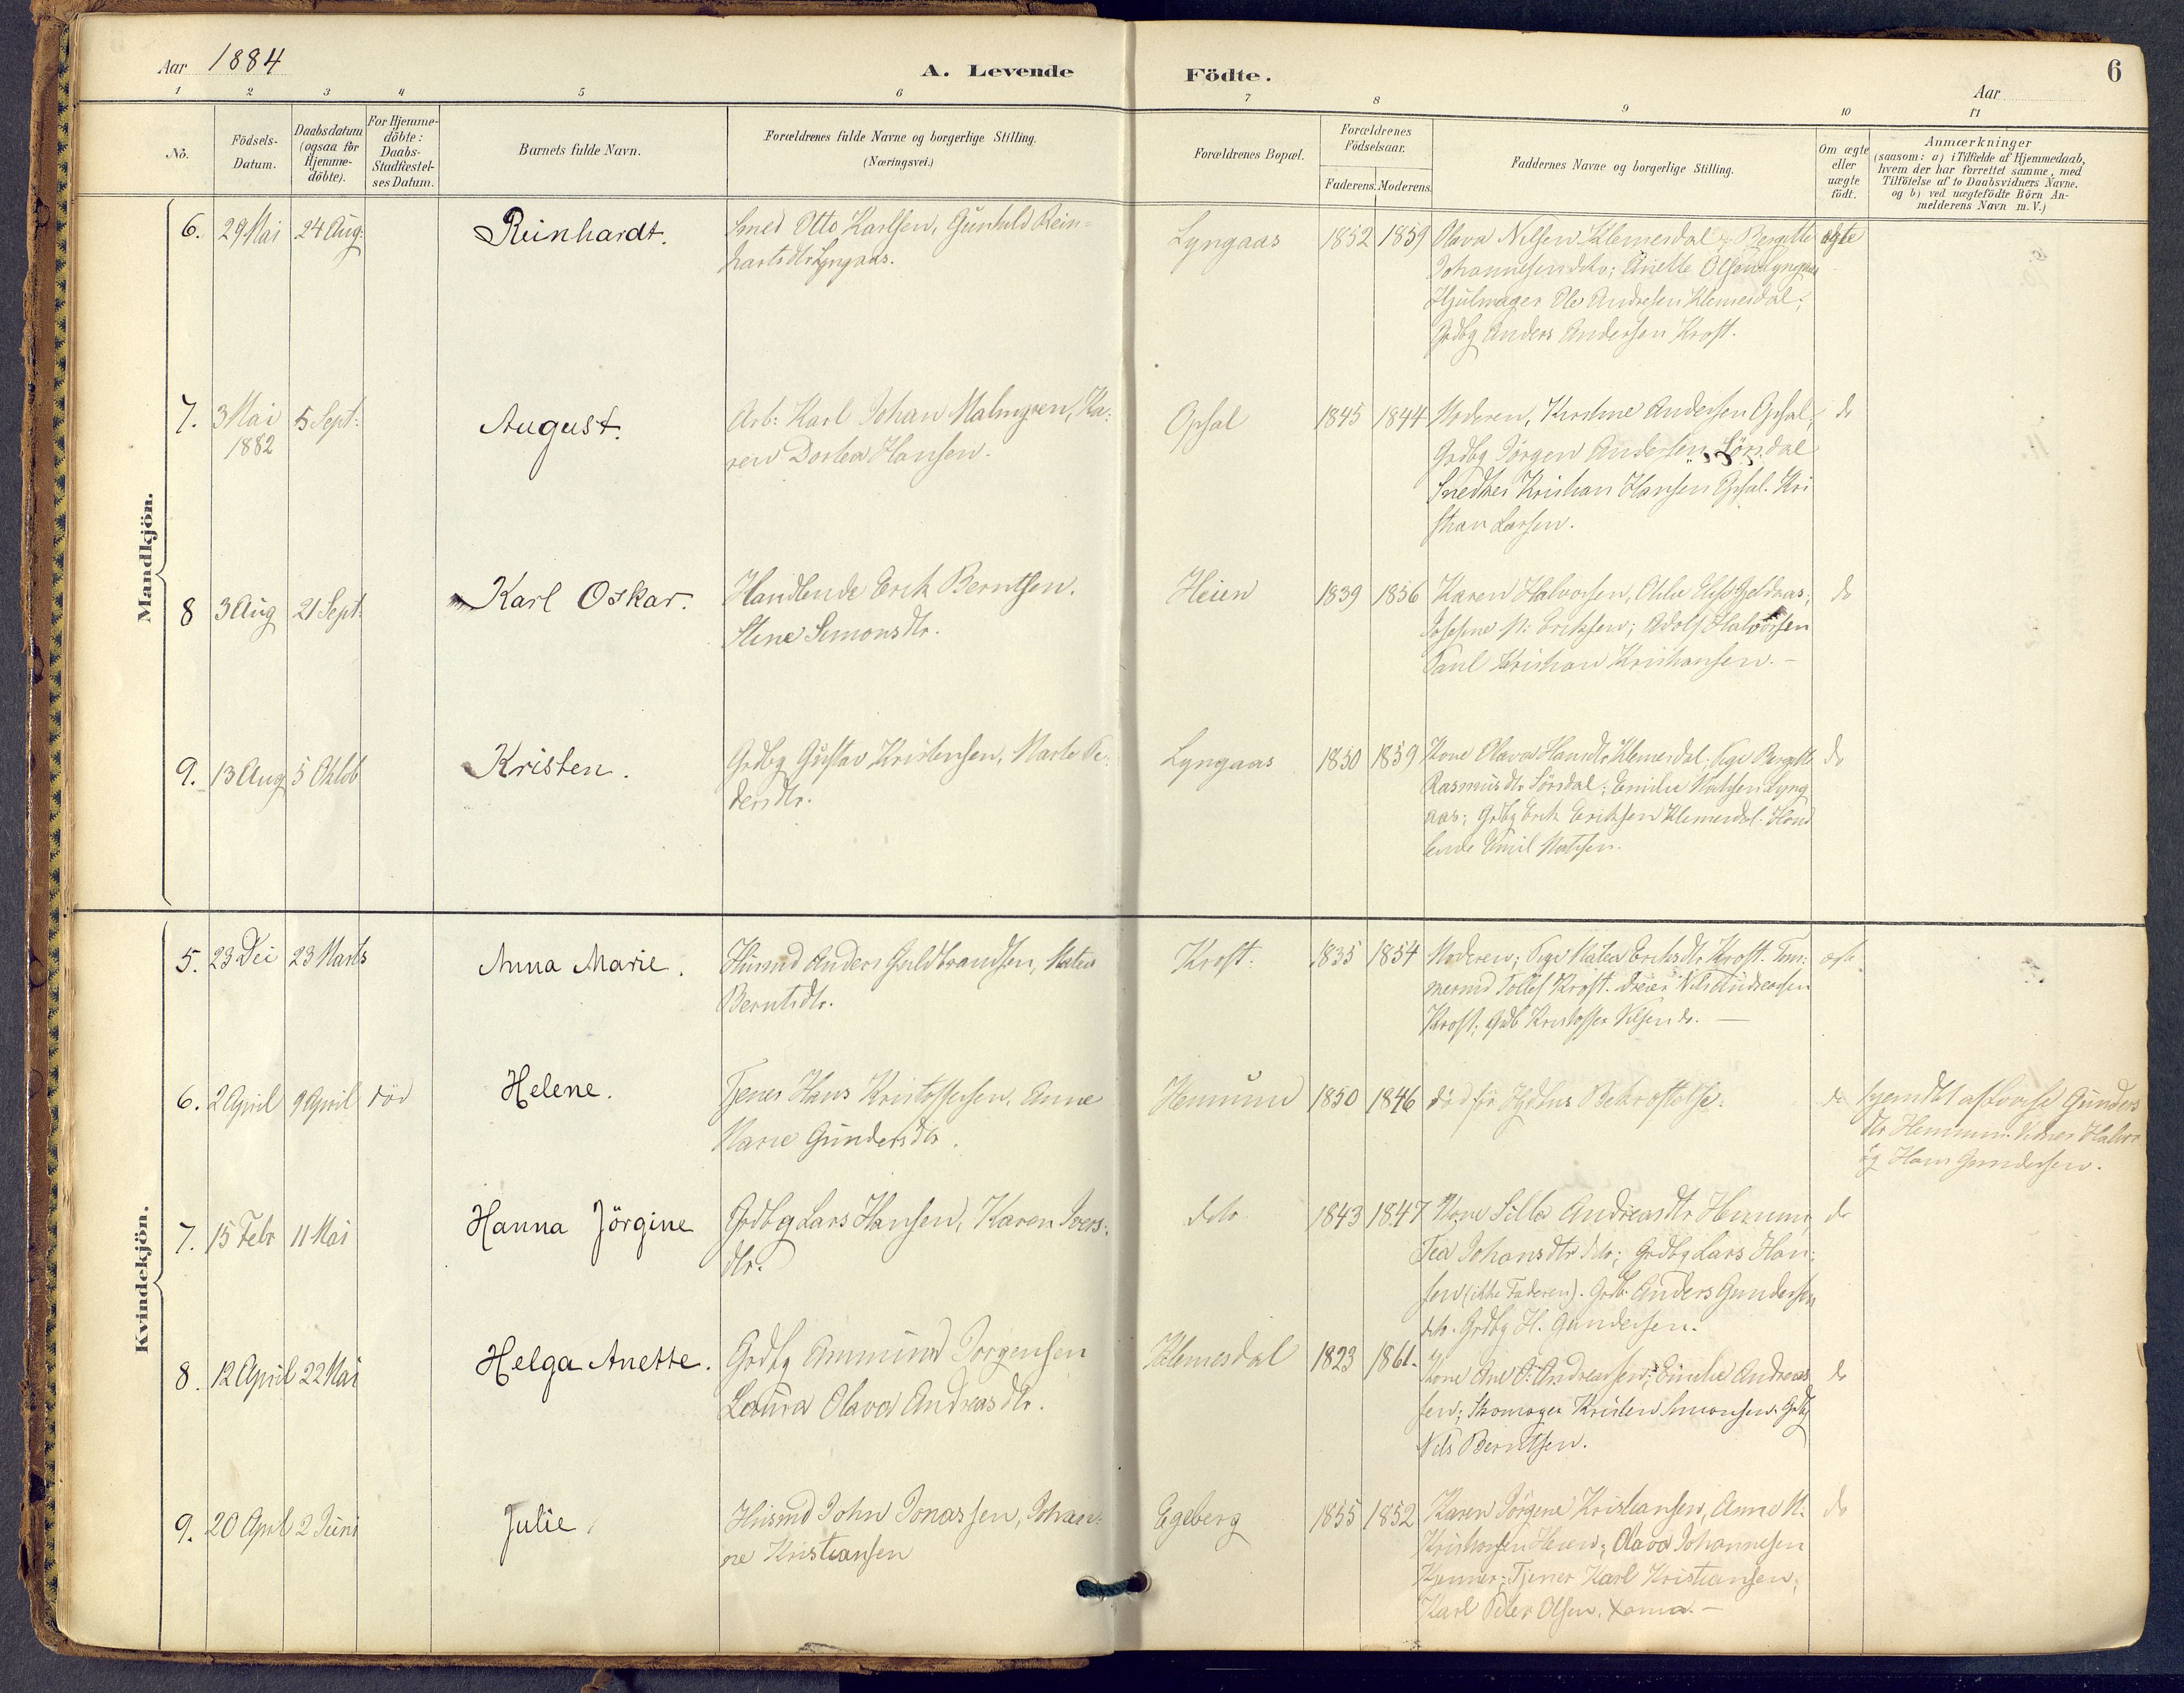 Aar 1884
A. Levende
Födte.
6
Aar
1 2 3 4 5 6 7 8 9 10 11
No.
Födsels-
Datum.
Daabsdatum
(ogsaa for
Hjemme-
döbte).
For Hjemme-
döbte:
Daabs-
Stadfæstel-
ses Datum.
Barnets fulde Navn.
Forældrenes fulde Navne og borgerlige Stilling.
(Næringsvei.)
Forældrenes Bopæl.
Forældrenes
Födselsaar.
Faderens. Moderens.
Faddernes Navne og borgerlige Stilling.
Om ægte
eller
uægte
födt.
Anmærkninger
(saasom: a) i Tilfælde af Hjemmedaab,
hvem der har forrettet samme, med
Tilföielse af to Daabsvidners Navne,
og b) ved uægtefödte Börn An-
melderens Navn m. V.)
Mandkjön.
6. 29 Mai 24 Aug: Reinhardt.
Smed Otto Karlsen, Gunhild Rein-
hartsdtr Lyngaas.
Lyngaas 1852 1859
Olava Nilsen Klemesdal; Bergitte
Johannesen dto; Anette Olsen Lyngaas
Hjulmager Ole Andresen Klemesdal;
Grdbg Anders Andersen Krost.
ægte
7. 3 Mai 5 Sept:
1882
August.
Arb: Karl Johan Malmgren, Ka-
ren Dortea Hansen.
Opsal 1845 1844
Moderen, Kristine Andersen Opsal,
Grdbg Jörgen Andersen Sörsdal
Snedker Kristian Hansen Opsal. Kri
stian Larsen.
do
8 3 Aug 21 Sept: Karl Oskar.
Handlende Erik Berntsen.
Stine Simonsdtr.
Heien 1839 1856
Karen Halvorsen,
Josefine M: Eriksen; Adolf Halvorsen
Paul Kristian Kristiansen. -
do
9. 13 Aug 5 Oktob Kristen.
Grdbg Gustav Kristensen, Marte Pe-
dersdtr.
Lyngaas 1850 1859
Kone Olava Hansdtr Klemesdal; Pige Bergitte
Rasmusdtr Sörsdal; Emilie Matsen Lyng
aas; Grdbg Erik Eriksen Klemesdal. Hand
lende Emil Matsen.
do
Kvindekjön.
5. 23 Dei 23 Marts Anna Marie.
Husmd Anders Guldbrandsen, Matea
Berntsdtr.
Krost. 1835 1854
Moderen; Pige Matea Eriksdtr Krost. Töm-
mermd Tollef Krost. Dreier Nils Andreasen
Krost; Grdb Kristoffer Nilsen do. -
ægte
6. 2 April 9 April död Helene.
Tjener Hans Kristoffersen, Anne
Marie Gundersdtr.
Hemund 1850 1846
död för Bekræftelse.
do
Hjemdbt af Gunders
dtr Hemmun. Vidner Halvor
og Hans Gundersen.
7. 15 Febr 11 Mai Hanna Jörgine
Grdbg Lars Hansen, Karen Ivers-
dtr.
dto 1843 1847
Kone Silla Andreasdtr Hemund,
Tea Johansdtr dto; Grdbg Lars Han-
sen (ikke Faderen). Grdb: Anders Gundersen
dto. Grdbg H. Gundersen.
do
8. 12 April 22 Mai Helga Anette.
Grdbg Ammund Jorgensen
Laura Olava Andreasdtr.
Klemesdal 1823 1861.
Kone Ane O. Andreassen; Emilie Andreas
sen; Skomager Kristen Simonsen. Grdbg
Nils Berntsen.
do
9. 20 April 2 Juni Julie
Husmd John Jonassen, Johan-
ne Kristiansen
Egeberg 1855 1852
Karen Jörgine Kristiansen, Anne M.
Kristiansen Heien; Olava Johannesen
Kjenner; Tjener Karl Kristiansen,
Karl Peter Olsen.
do